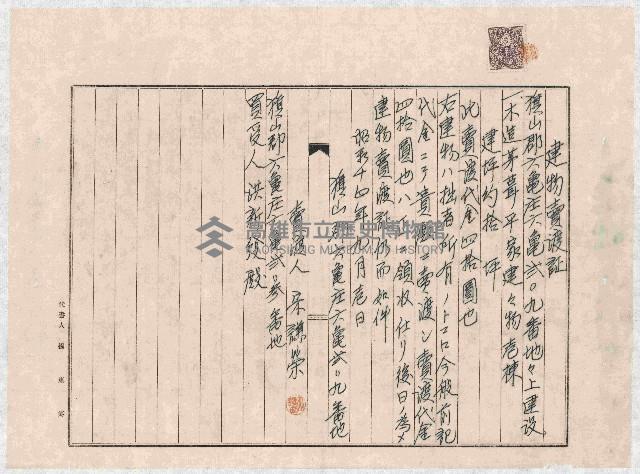 建物賣渡証
旗山郡六龜庄六龜弐〇九番地々上建設
一木造茅葺平家建々物壱棟
建坪約拾坪
此賣渡代金四拾圓也
右建物ハ拙者所有ノトコロ今般前記
代金ニテ貴殿ニ賣渡シ賣渡代金
四拾圓也ハ領收仕リ後日ノ為メ
建物賣渡証仍而如件
昭和十四年 月壱日
旗山郡六龜庄六龜弐〇九番地
賣渡人
旗山郡六龜庄六龜弐 番地
買受人 洪 殿
代書人
高雄市立歷史博物館
KAOHSIUNG MUSEUM OF HISTORY